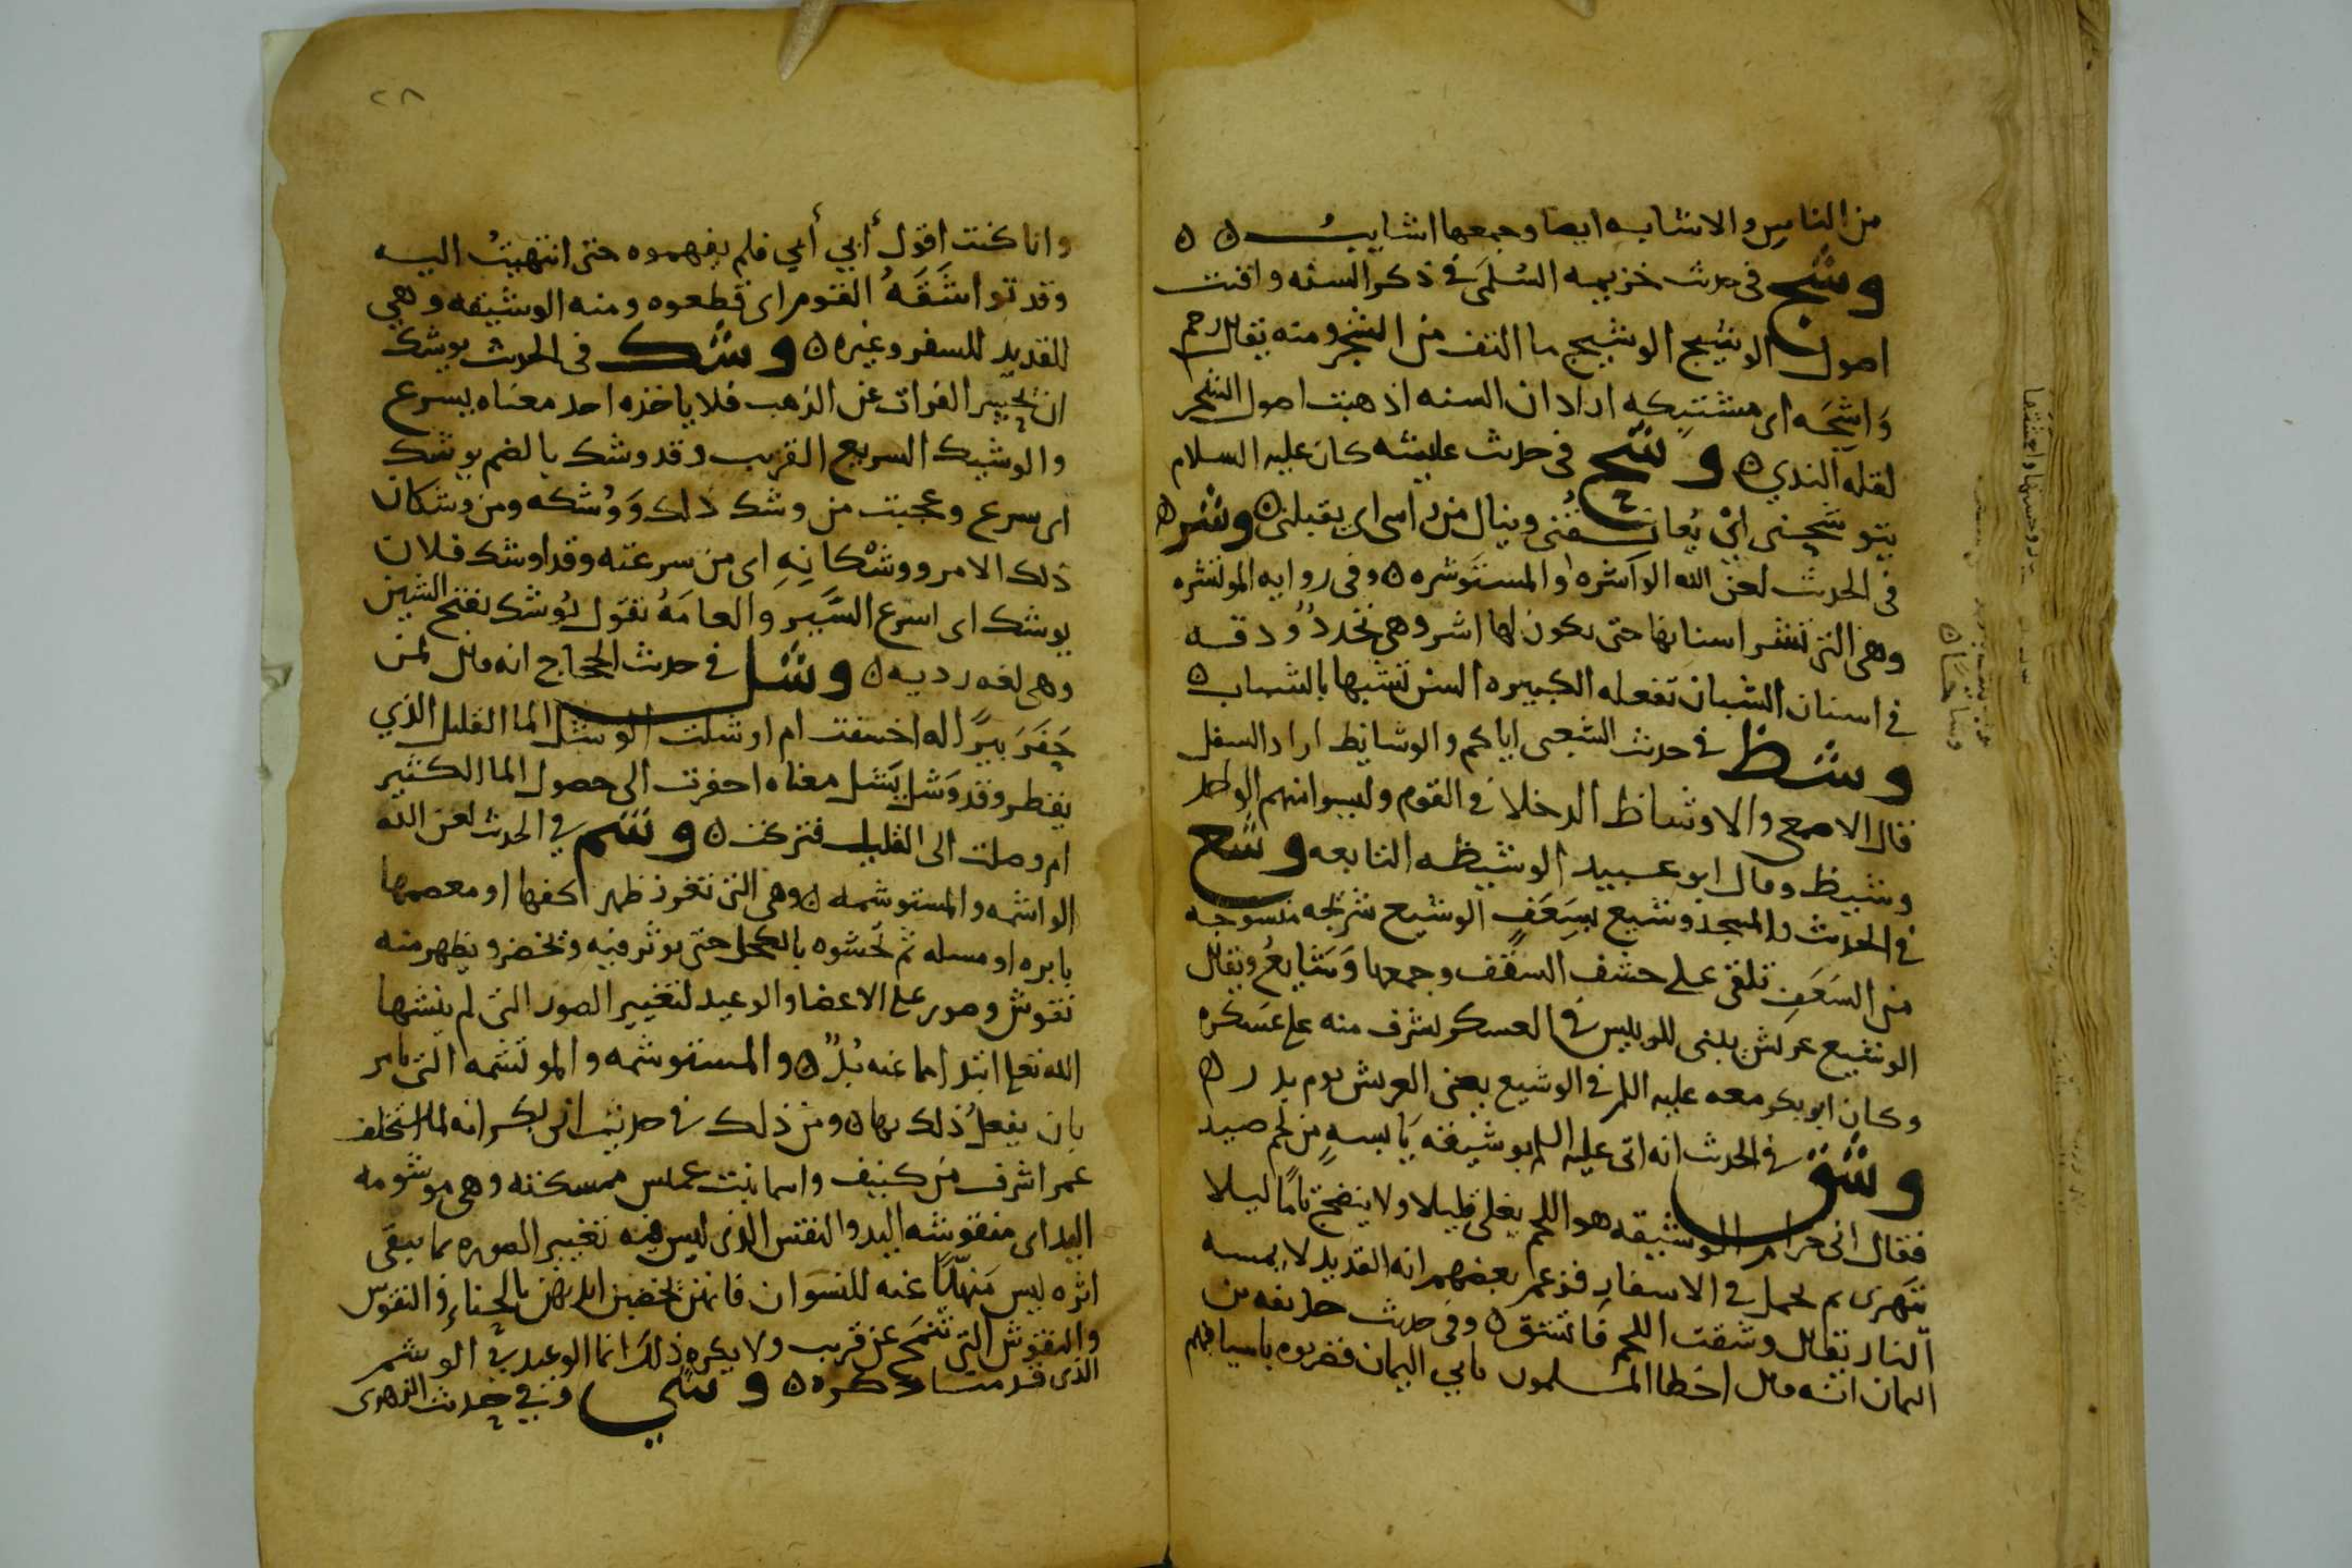 من الناس والاشابه ايضا وجمعها اشايب ه ه
وشج في حدث خزيمه السلمي في ذكر السنه وافنت
اصول الوشيج الوشيج ما التف من الشجر ومنه يقال رحم
وَاشجَه اى مشتبكه اراد ان السنه اذهبت اصول الشجر
لقله الندي ه وشح في حدث عايشه كان عليه السلام
يتوشحني اى يُعانقُني وينال من راسى اى يقبلنى ه وشر ه
في الحدث لعن الله الواشره والمستوشره ه وفى روايه الموتشره
وهى التي تشر اسنانها حتى يكون لها اشر وهى تحددٌ ودقه
في اسنان الشبان تفعله الكبيره السن تشبها بالشباب ه
وشظ في حدث الشعبى اياكم والوشايظ اراد السفل
قال الاصمعي والاوشاظ الدخلا في القوم وليسوا منهم الواحد
وشيظ وقال ابو عبيد الوشيظه التابعه وشع
في الحدث والمسجد وشيع بسَعَفٍ الوشيع شريجه منسوجه
من السَعَفِ تلقى على خشف السقف وجمعها وَشَايعُ ويقال
الوشيع عريش يبنى للرييس في العسكر يشرف منه على عَسكره
وكان ابو بكر معه عليه السلم في الوشيع يعنى العريش يوم بدر ه
وشق في الحدث انه اتى عليه السلم بوشيقه يَابسهٍ من لحم صيد
فقال انى حرام الوشيقه هو اللحم يغلى قليلا ولا ينضج تامًا ليلا
يتهرى ثم يحمل في الاسفار فزعم بعضهم انه القديد لا يمسه
النار يقال وشقت اللحم فَاتشق ه وفى حدث حذيفه بن
اليمان انه قال اخطا المسلمون بابي اليمان فضربوه باسيافهم
وانا كنت اقول أبي أبي فلم يفهموه حتى انتهيتُ اليه
وقد تواشَقَهُ القوم اى قطعوه ومنه الوشيقه وهي
القديد للسفر وغيره ه وشك في الحدث يوشك
ان يحسر الفرات عن الذهب فلا ياخذه احد معناه يسرع
والوشيك السريع القريب وقد وشك بالضم يوشك
اى سرع وعجبت من وشك ذلك وَوُشكه ومن وشكان
ذلك الامر ووشْكانِهِ اى من سرعته وقد اوشك فلان
يوشك اى اسرع السَّير والعامَهُ تقول يُوشَك بفتح الشين
وهى لغه رديه ه وشل في حدث الحجاج انه قال لمن
حَفَرَ بيرًا له اخسفت ام اوشلت الوشل الما القليل الذي
يقطر وقد وَشل يَشل معناه احفرت الى حصول الما الكثير
ام وصلت الى القليل فتركت ه وشم في الحدث لعن الله
الواشمه والمستوشمه ه وهى التى تغرز ظهر اكفها او معصمها
بابره او مسله ثم تحشوه بالكحل حتى يوثر فيه وتخضر ويظهر منه
نقوش وصور على الاعضا والوعيد لتغيير الصور التى لم ينشها
الله تعلى ابتدا ما عنه بُدٌ ه والمستوشمه والموتشمه التى تامر
بان يفعلُ ذلك بها ه ومن ذلك في حديث ابى بكر انه لما استخلف
عمر اشرف من كنيف واسما بنت عميس ممسكته وهى موشومه
اليد اى منقوشه اليد والنقش الذى ليس فيه تغيير الصوره بما يبقى
اثره ليس مَنهيّا عنه للنسوان فانهن يخضبن ايديهن بالحناءِ والنقوش
والنقوش التى تنمح عن قريب ولا يكره ذلك انما الوعيد في الوشم
الذى قدمنا ذكره ه وشي وفي حدث الزهرى
٢٨